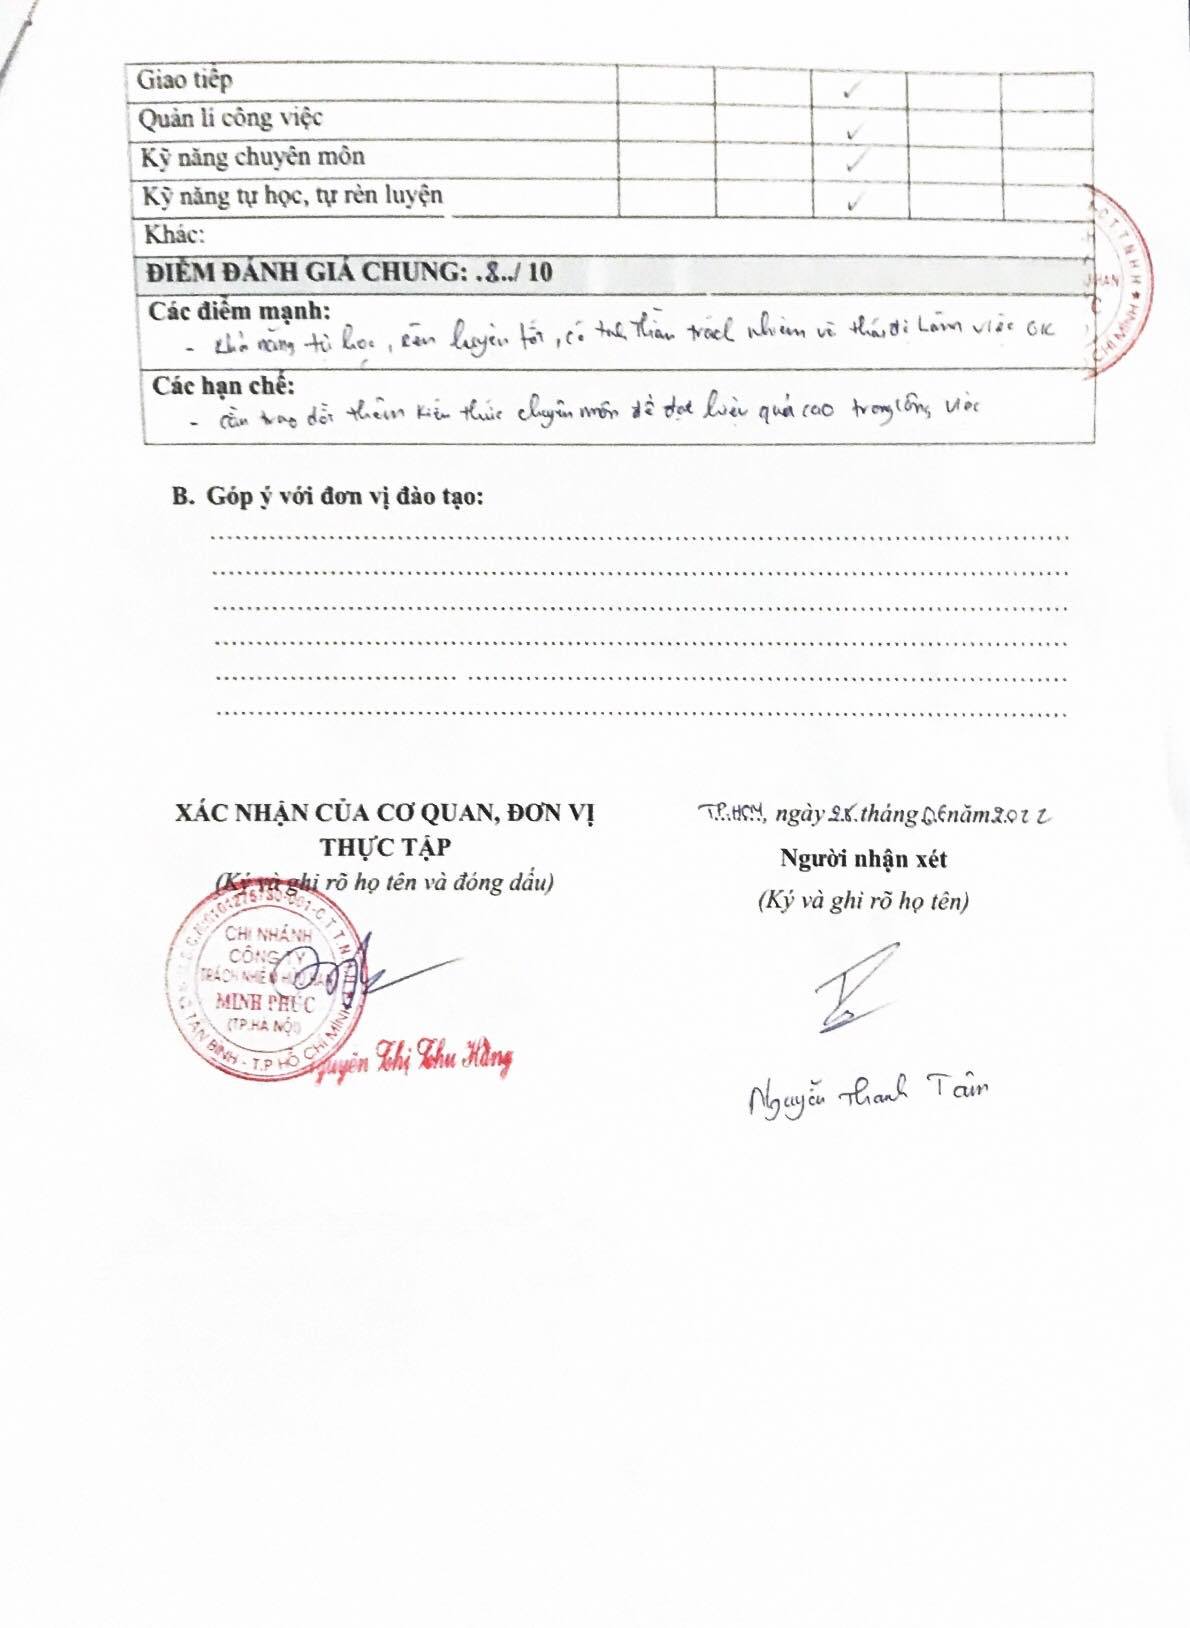 Giao tiếp ✓
Quản lí công việc ✓
Kỹ năng chuyên môn ✓
Kỹ năng tự học, tự rèn luyện ✓
Khác:
ĐIỂM ĐÁNH GIÁ CHUNG: .8../ 10
Các điểm mạnh:
- Khả năng tự học, rèn luyện tốt, có tinh thần trách nhiệm và thái độ làm việc OK
Các hạn chế:
- cần trao dồi thêm kiến thức chuyên môn để đạt hiệu quả cao trong công việc
B. Góp ý với đơn vị đào tạo:
XÁC NHẬN CỦA CƠ QUAN, ĐƠN VỊ
THỰC TẬP
(Ký và ghi rõ họ tên và đóng dấu)
CHI NHÁNH
CÔNG TY
TRÁCH NHIỆM HỮU HẠN
MINH PHÚC
(TP.HÀ NỘI)
TÂN BÌNH - T.P HỒ CHÍ MINH
Nguyễn Thị Thu Hằng
TP.HCM, ngày 28 tháng 06 năm 2022
Người nhận xét
(Ký và ghi rõ họ tên)
Nguyễn Thanh Tâm